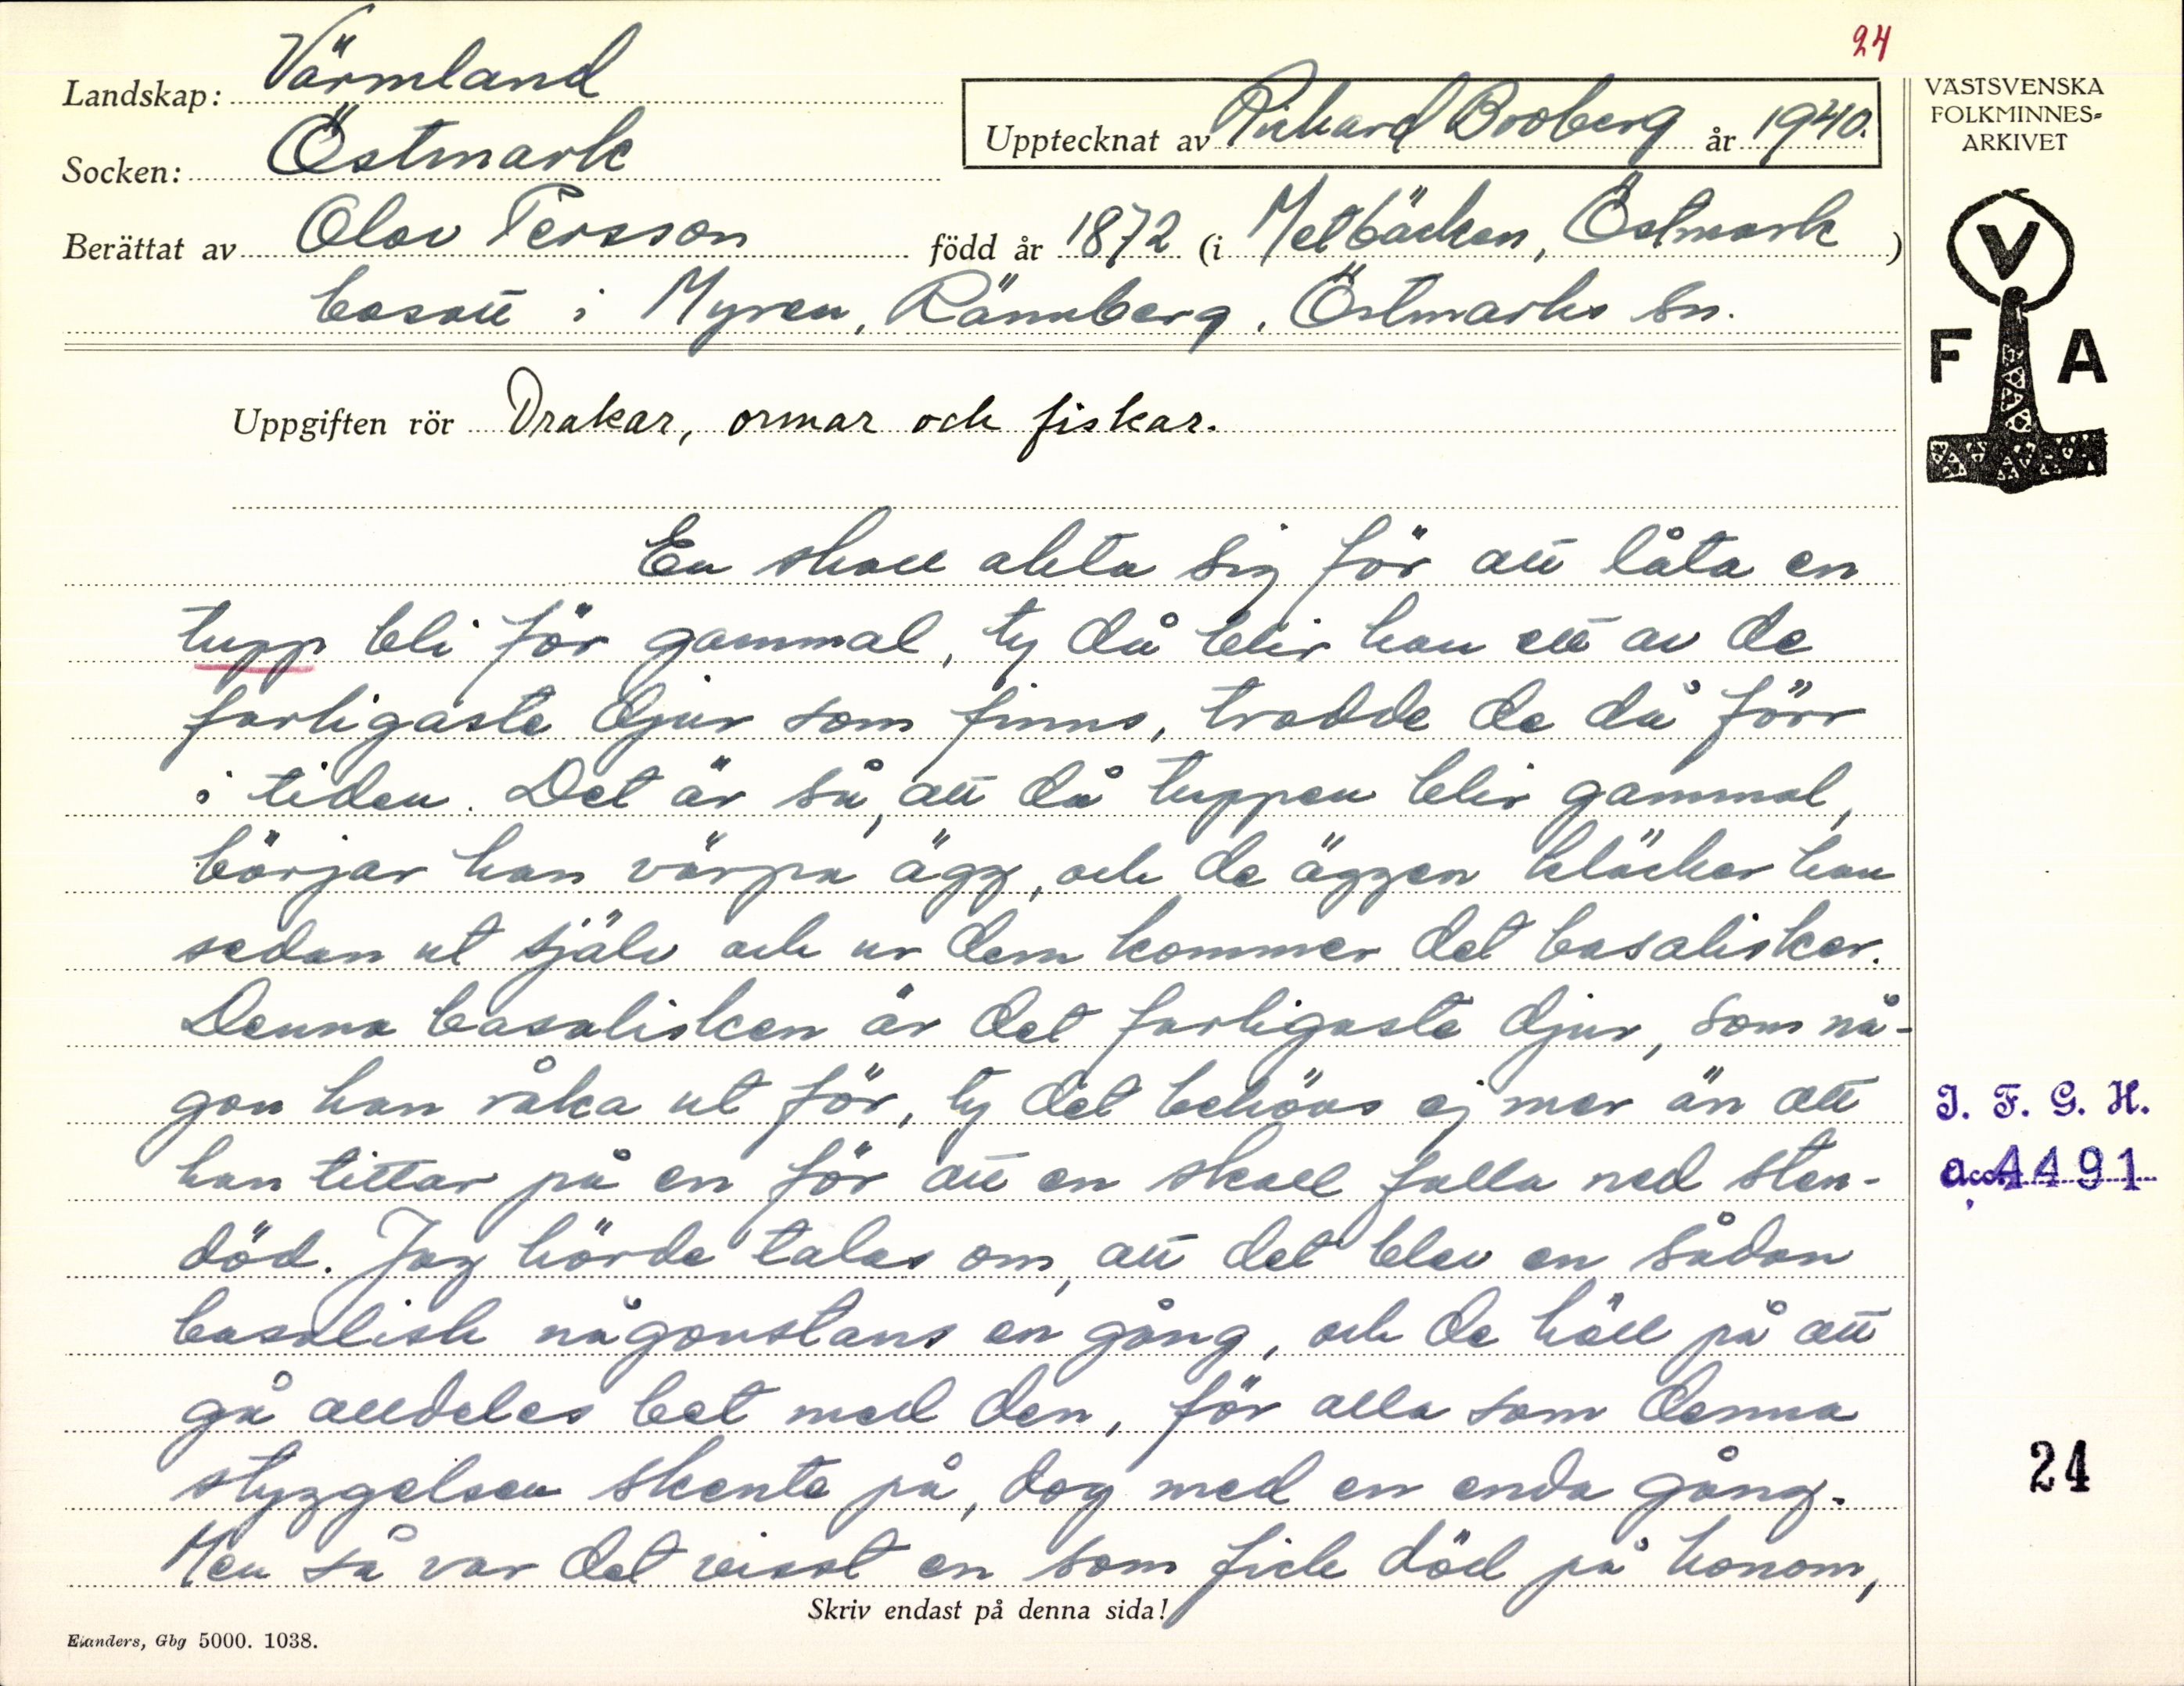 24
Landskap: Värmland
Socken: Östmark
Upptecknat av Richard Broberg år 1940.
Berättat av Olov Persson född år 1872 (i Metbäcken, Östmark)
bosatt i Myren, Rännberg, Östmarks sn.
Uppgiften rör Drakar, ormar och fiskar.
En skall akta sig för att låta en
tupp bli för gammal, ty då blir han ett av de
farligaste djur som finns, trodde de då förr
i tiden. Det är så, att då tuppen blir gammal,
börjar han värpa ägg, och de äggen kläcker han
sedan ut själv och ur dem kommer det basalisker.
Denna basalisken är det farligaste djur, som nå-
gon kan råka ut för, ty det behövs ej mer än att
han tittar på en för att en skall falla ned sten-
död. Jag hörde talas om, att det blev en sådan
basalisk någonstans en gång, och de höll på att
gå alldeles bet med den, för alla som denna
styggelsen skente på, dog med en enda gång.
Men så var det visst en som fick död på honom,
Skriv endast på denna sida!
Elanders, Gbg 5000. 1038.
VÄSTSVENSKA
FOLKMINNES-
ARKIVET
V
F A
I. F. G. H.
acc. 4491
24